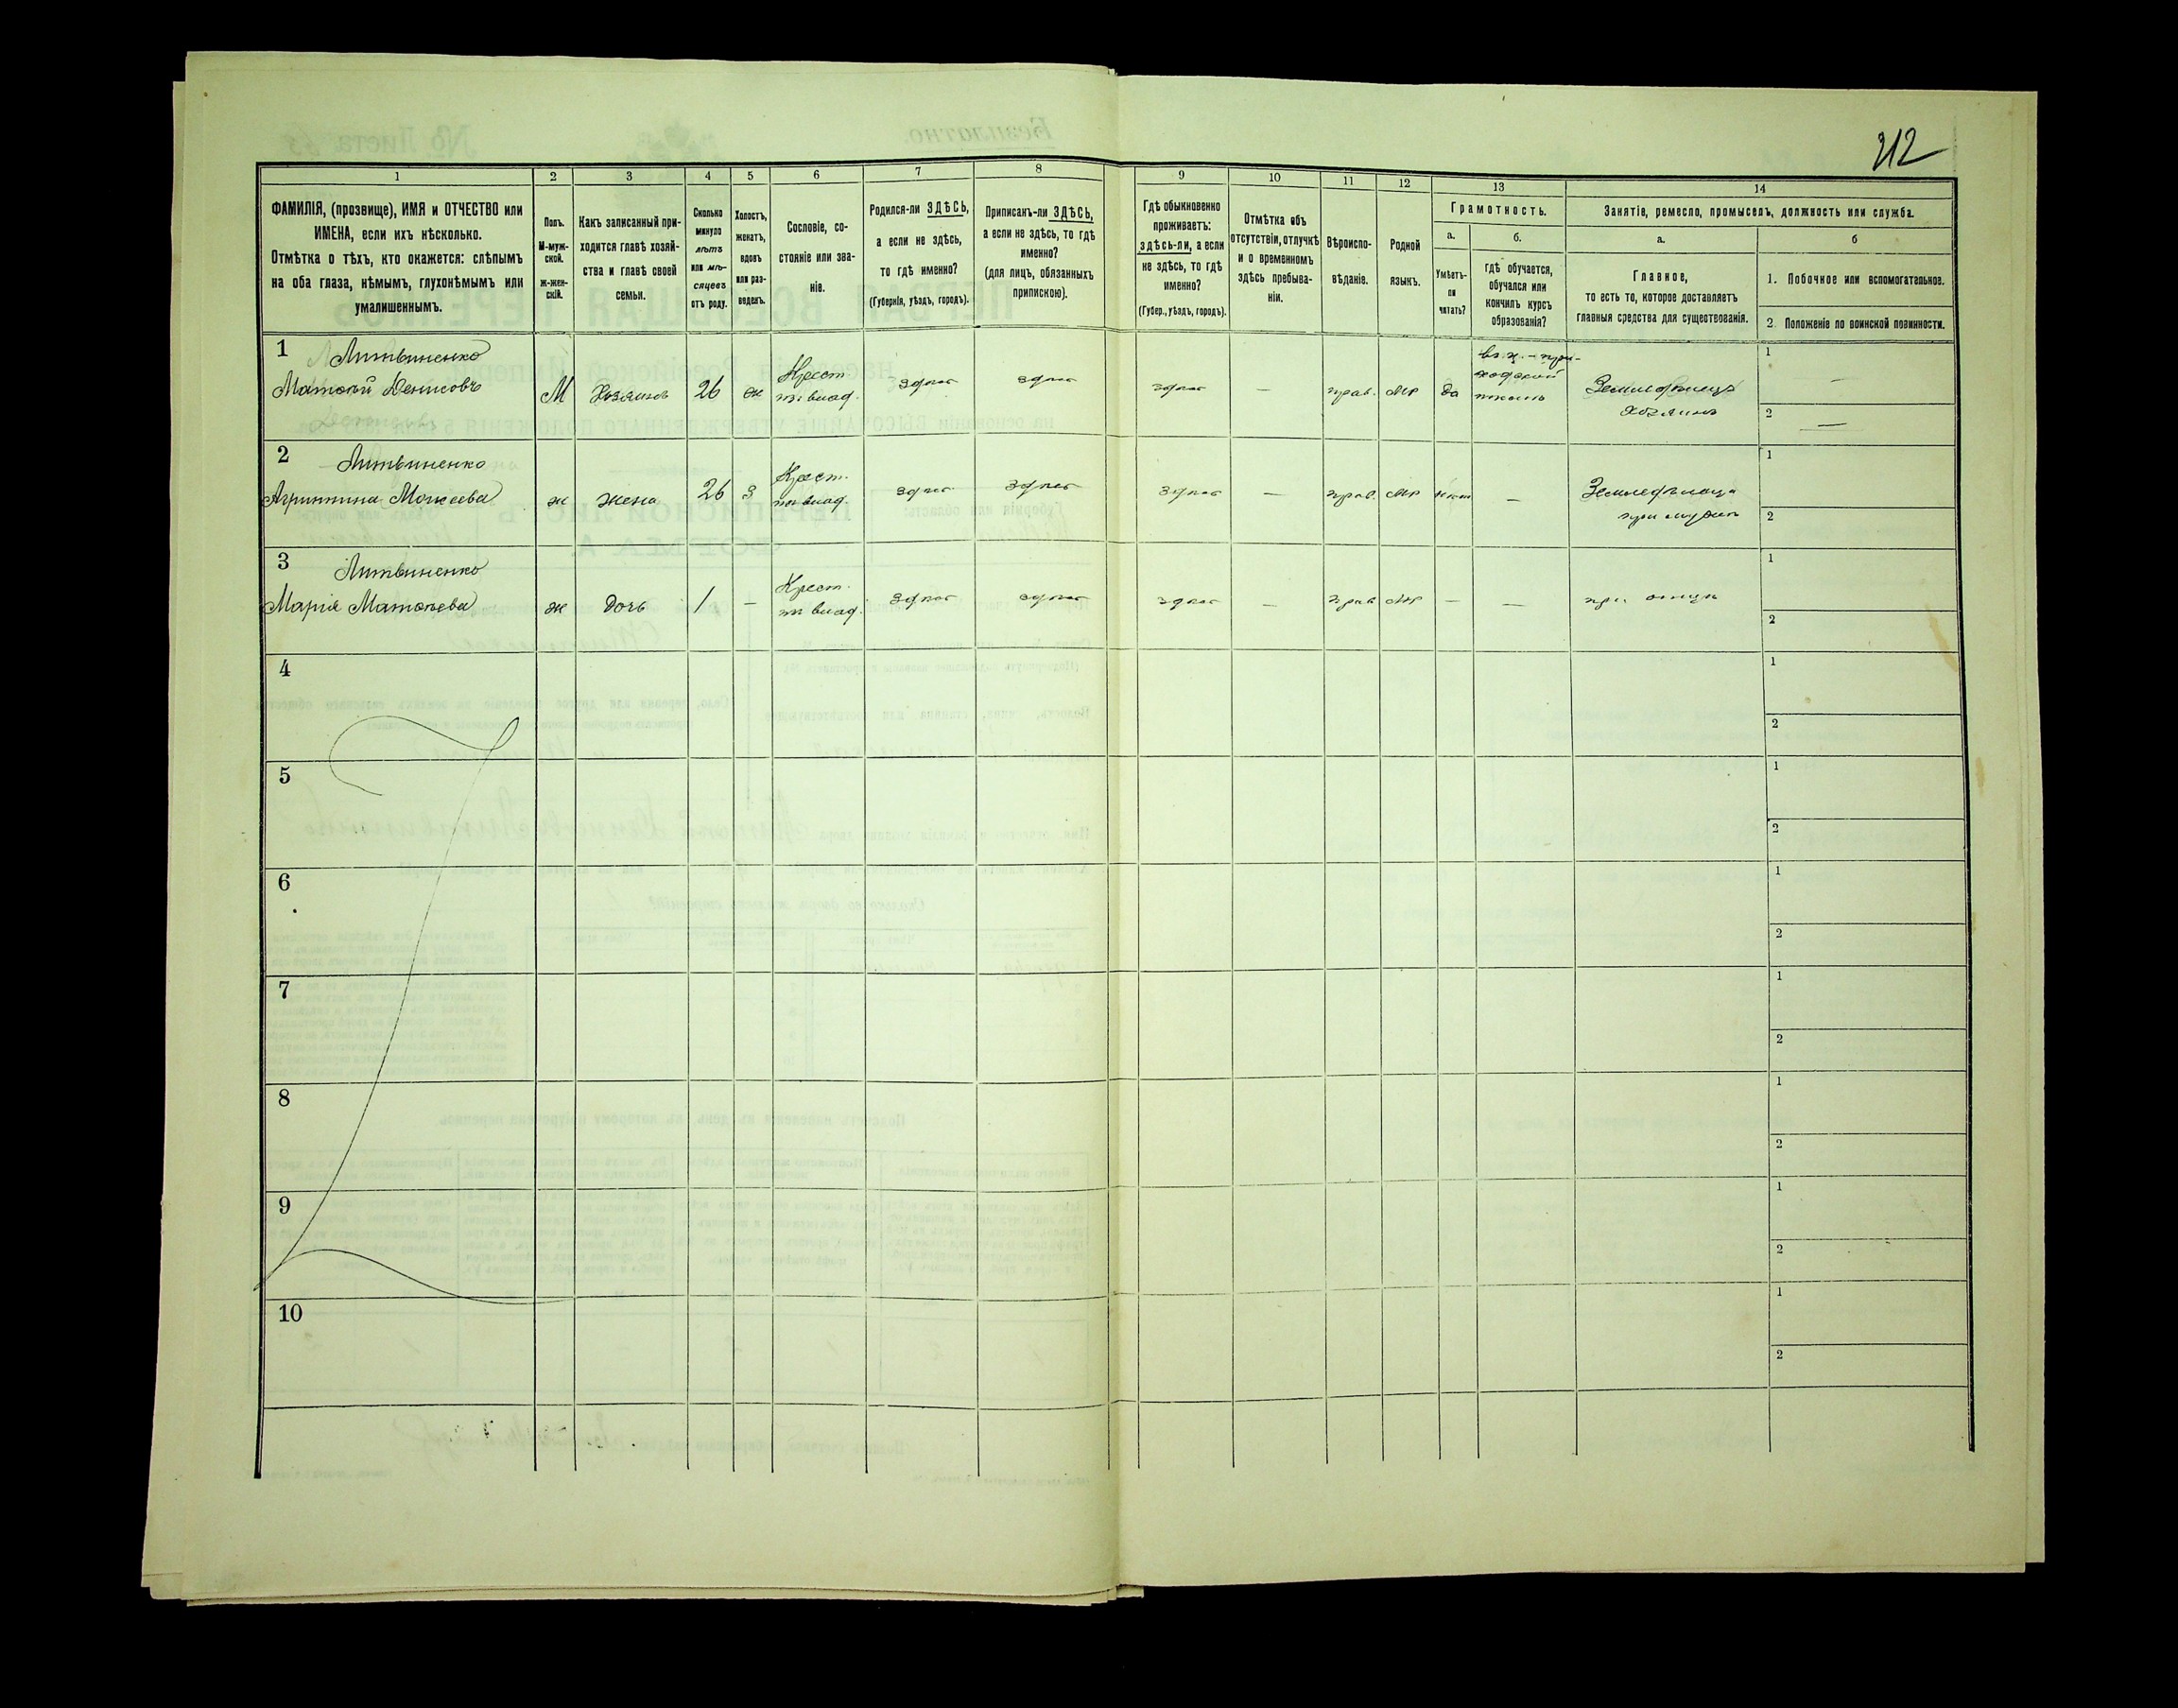 212
1
2
3
4
5
6
7
8
9
10
11
12
13
14
ФАМИЛІЯ, (прозвище), ИМЯ и ОТЧЕСТВО или
ИМЕНА, если ихъ нѣсколько.
Отмѣтка о тѣхъ, кто окажется: слѣпымъ
на оба глаза, нѣмымъ, глухонѣмымъ или
умалишеннымъ.
Полъ.
М-муж-
ской.
ж-жен-
скій.
Какъ записанный при-
ходится главѣ хозяй-
ства и главѣ своей
семьи.
Сколько
минуло
лѣтъ
или мѣ-
сяцевъ
отъ роду.
Холостъ,
женатъ,
вдовъ
или раз-
веденъ.
Сословіе, со-
стояніе или зва-
ніе.
Родился-ли ЗДѢСЬ,
а если не здѣсь,
то гдѣ именно?
(Губернія, уѣздъ, городъ).
Приписанъ-ли ЗДѢСЬ,
а если не здѣсь, то гдѣ
именно?
(для лицъ, обязанныхъ
припискою).
Гдѣ обыкновенно
проживаетъ:
здѣсь-ли, а если
не здѣсь, то гдѣ
именно?
(Губер., уѣздъ, городъ).
Отмѣтка объ
отсутствіи, отлучкѣ
и о временномъ
здѣсь пребыва-
ніи.
Вѣроиспо-
вѣданіе.
Родной
языкъ.
Грамотность.
а.
Умѣетъ-
ли
читать?
б.
гдѣ обучается,
обучался или
кончилъ курсъ
образованія?
Занятіе, ремесло, промыселъ, должность или служба.
а.
Главное,
то есть то, которое доставляетъ
главныя средства для существованія.
б
1. Побочное или вспомогательное.
2. Положеніе по воинской повинности.
1 Литвиненко
Матвѣй Денисовъ
М
Хозяинъ
26
ж
Крест.
изъ влад.
здѣсь
здѣсь
здѣсь
—
прав.
Мр
да
въ ц.-при-
ходской
школѣ
Земледѣлецъ
хозяинъ
1 —
2 —
2 Литвиненко
Агрипина Моисеева
ж
жена
26
З
Крест.
изъ влад.
здѣсь
здѣсь
здѣсь
—
прав.
Мр
нѣтъ
—
Земледѣлица
при мужѣ
1
2
3 Литвиненко
Марія Матвѣева
ж
дочь
1
—
Крест.
изъ влад.
здѣсь
здѣсь
здѣсь
—
прав
Мр
—
—
при отцѣ
1
2
4
1
2
5
1
2
6
1
2
7
1
2
8
1
2
9
1
2
10
1
2